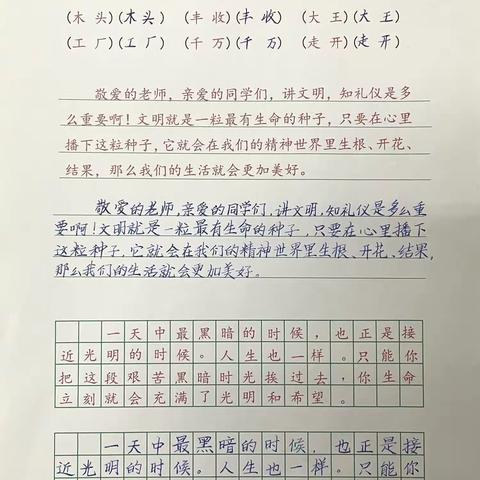 (木头)(木头) (丰收)(丰收) (大王)(大王)
(工厂)(工厂) (千万)(千万) (走开)(走开)
敬爱的老师，亲爱的同学们，讲文明，知礼仪是多
么重要啊！文明就是一粒最有生命的种子，只要在心里
播下这粒种子，它就会在我们的精神世界里生根、开花、
结果，那么我们的生活就会更加美好。
敬爱的老师，亲爱的同学们，讲文明，知礼仪是多么重
要啊！文明就是一粒最有生命的种子，只要在心里播下
这粒种子，它就会在我们的精神世界里生根、开花、结果，
那么我们的生活就会更加美好。
一天中最黑暗的时候，也正是接
近光明的时候。人生也一样。只能你
把这段艰苦黑暗时光挨过去，你生命
立刻就会充满了光明和希望。
一天中最黑暗的时候，也正是接
近光明的时候。人生也一样。只能你